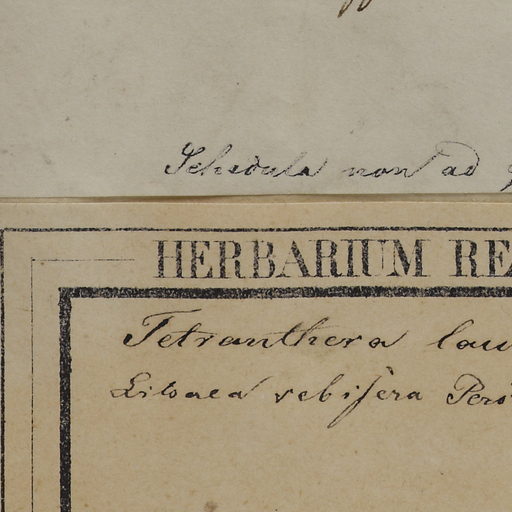 Schedula non ad
HERBARIUM RE
Tetranthera lau
Litsaea sebifera Pers